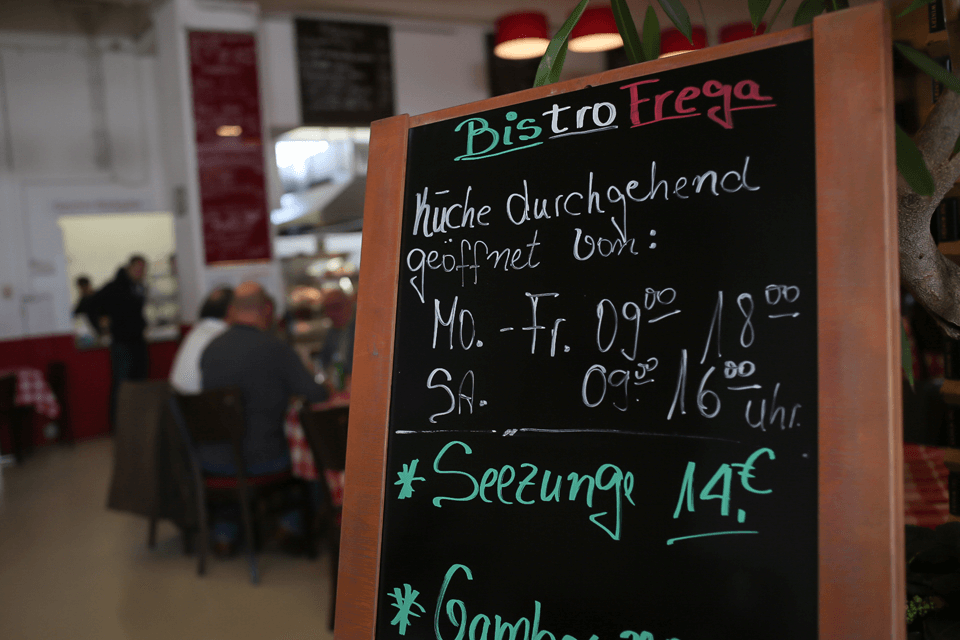 Bistro Frega
Küche durchgehend
geöffnet von:
Mo. - Fr. 09⁰⁰ 18⁰⁰
SA. 09⁰⁰ 16⁰⁰ Uhr.
* Seezunge 14,€
*